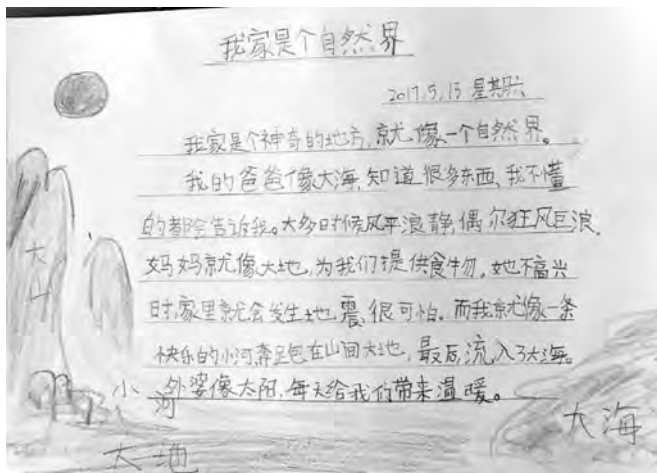 我家是个自然界
2017.5.13 星期六
我家是个神奇的地方,就像一个自然界。
我的爸爸像大海,知道很多东西,我不懂
的都会告诉我。大多时候风平浪静,偶尔狂风巨浪。
妈妈就像大地,为我们提供食物,她不高兴
时,家里就会发生地震,很可怕。而我就像一条
快乐的小河奔跑在山间大地,最后流入了大海。
外婆像太阳,每天给我们带来温暖。
大山
小河
大地
大海